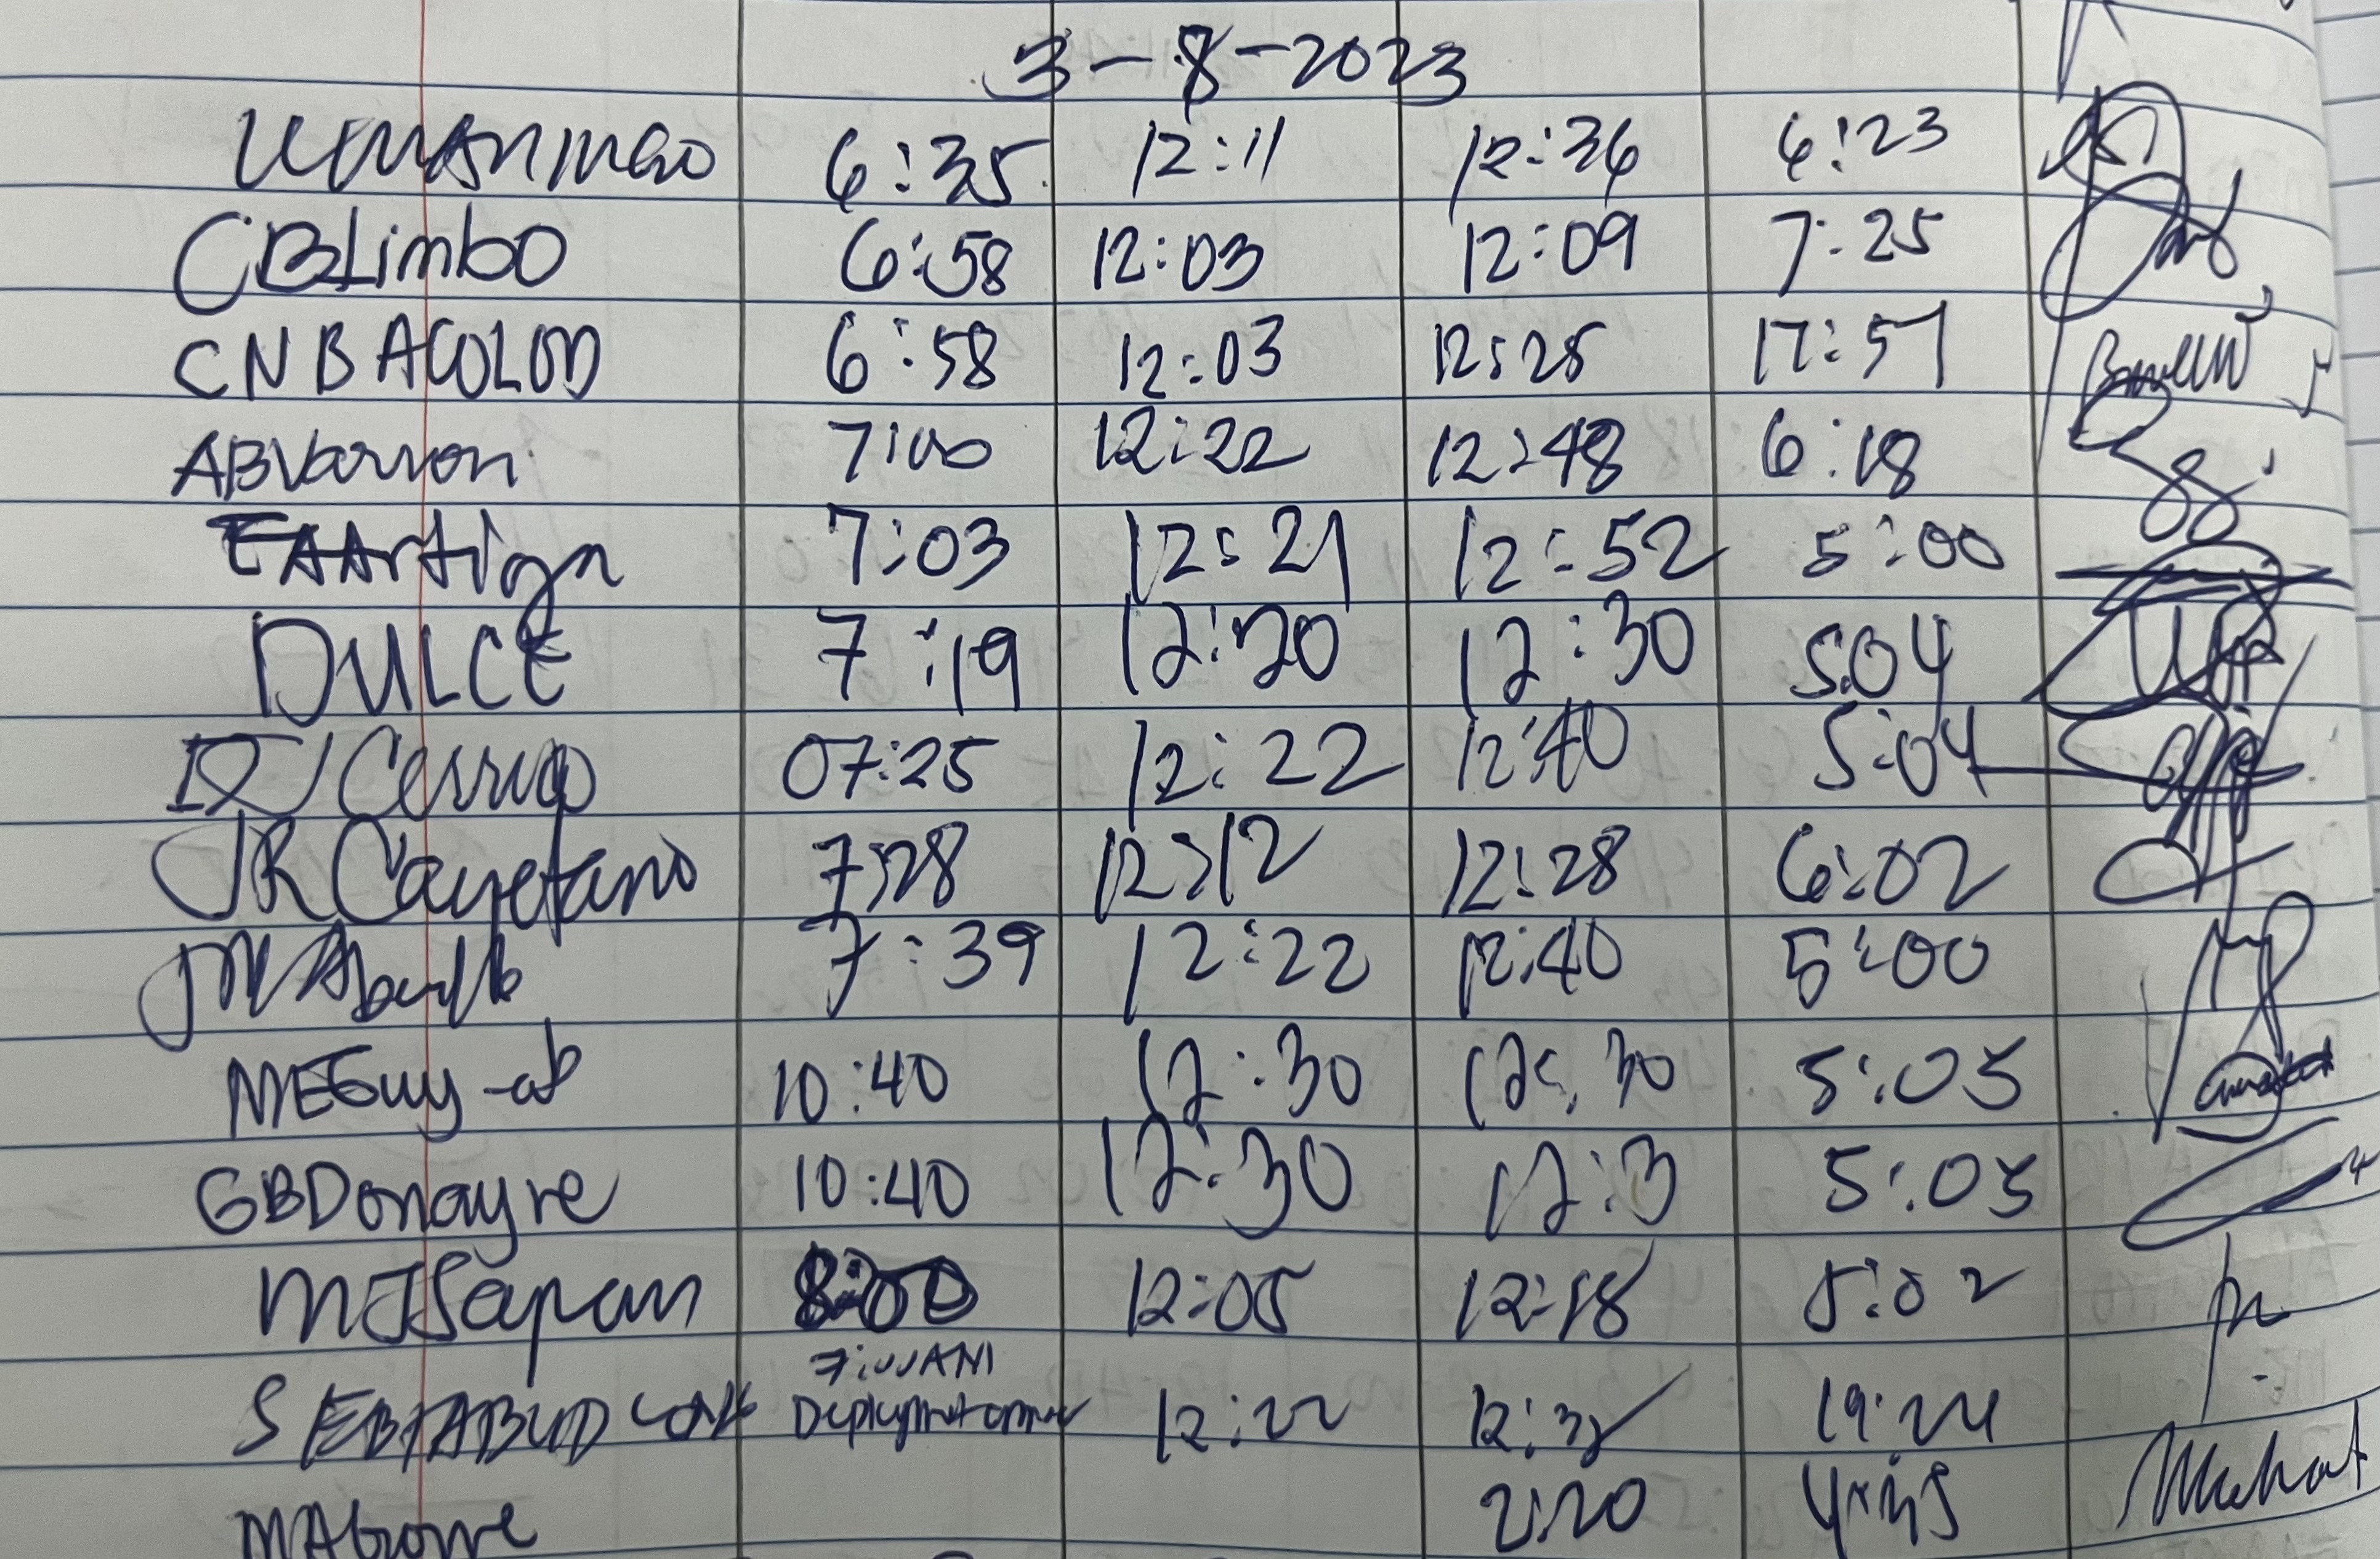 3-8-2023
6:35 12:11 12:36 6:23
CBLimbo 6:58 12:03 12:09 7:25
CNBACOLOD 6:58 12:03 12:28 17:57
ABVarron 7:00 12:22 12:48 6:18
EAArtiga 7:03 12:21 12:52 5:00
DULCE 7:19 12:20 12:30 5:04
07:25 12:22 12:40 5:04
JRCayetano 7:28 12:12 12:28 6:02
7:39 12:22 12:40 5:00
MEGuy-ab 10:40 12:30 12:30 5:05
GBDonayre 10:40 12:30 12:3 5:05
MJSapan 8:00 12:05 12:18 5:02
12:22 19:24
2:20 4:45